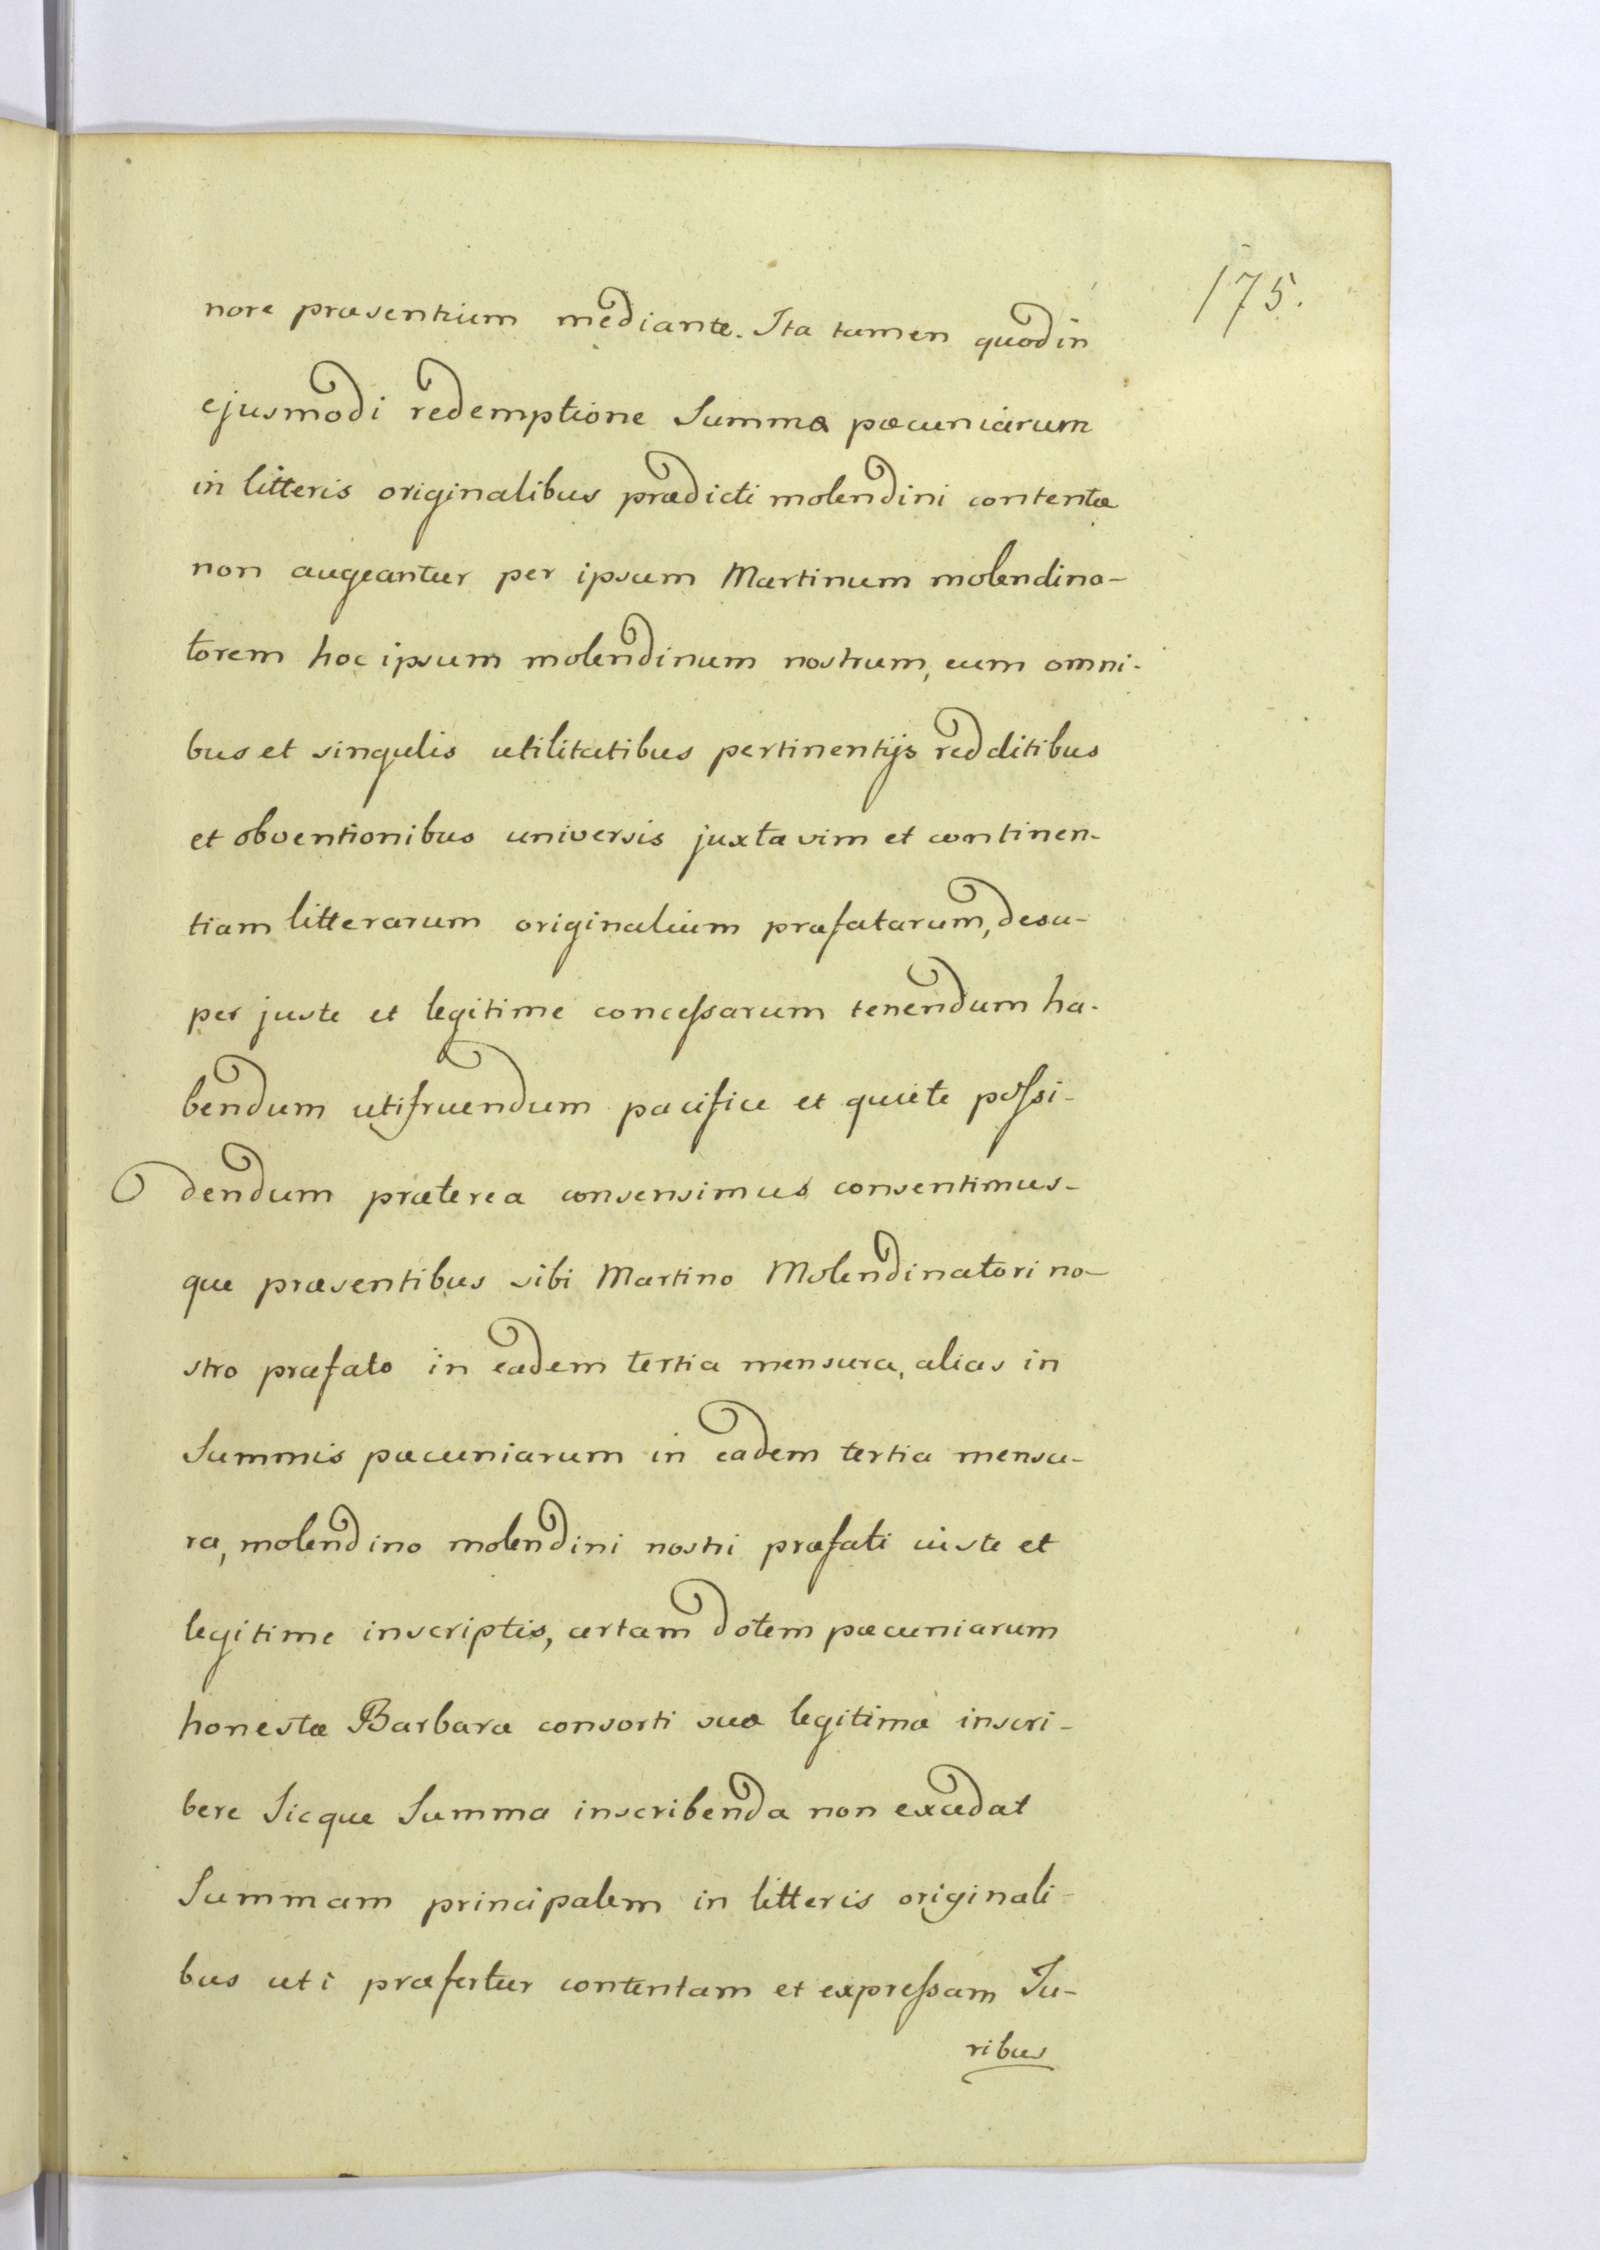 175.
nore præsentium mediante. Ita tamen quod in
ejusmodi redemptione Summæ pæcuniarum
in litteris originalibus prædicti molendini contentæ
non augeantur per ipsum Martinum molendina-
torem hoc ipsum molendinum nostrum, cum omni-
bus et singulis utilitatibus pertinentijs redditibus
et obventionibus universis juxta vim et continen-
tiam litterarum originalium præfatarum, desu-
per juste et legitime concessarum tenendum ha-
bendum utifruendum pacifice et quiete possi-
dendum præterea consensimus consentimus-
que præsentibus sibi Martino Molendinatori no-
stro præfato in eadem tertia mensura, alias in
Summis pæcuniarum in eadem tertia mensu-
ra, molendino molendini nostri præfati juste et
legitime inscriptis, certam dotem pæcuniarum
honestæ Barbaræ consorti suæ legitimæ inscri-
bere Sicque Summa inscribenda non excedat
Summam principalem in litteris originali-
bus uti præfertur contentam et expressam Ju-
ribus